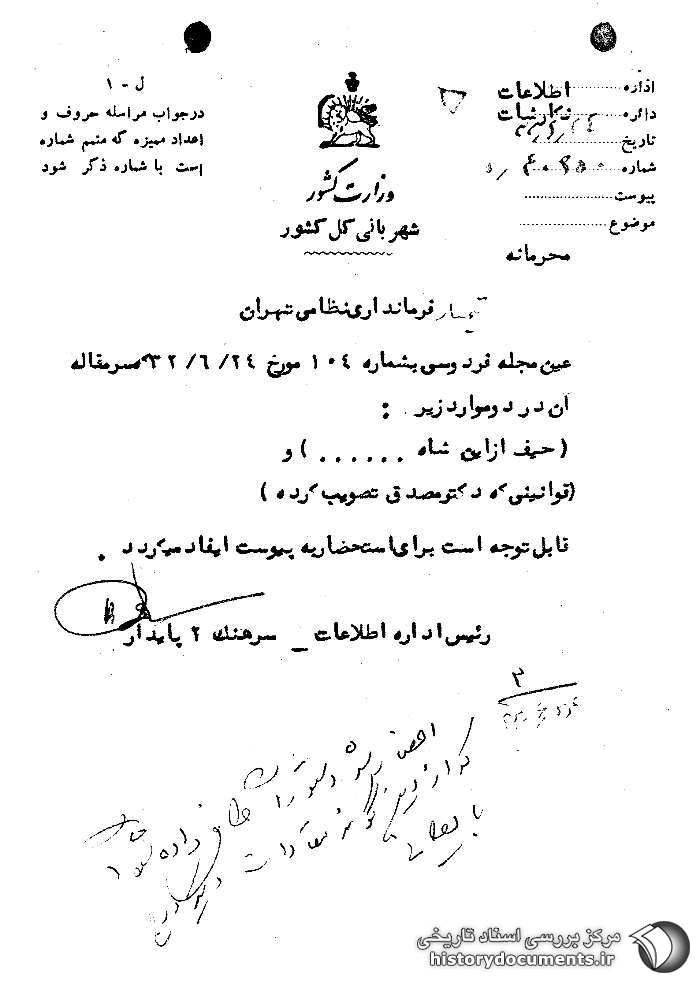 اداره اطلاعات
دائره نگارشات
تاریخ
شماره
پیوست
موضوع
محرمانه
وزارت کشور
شهربانی کل کشور
ل - ۱
درجواب مراسله حروف و
اعداد ممیزه که متمم شماره
است با شماره ذکر شود
تیمسار فرمانداری نظامی تهران
عین مجله فردوسی بشماره ۱۰۴ مورخ ۳۲/۶/۲۴ که سرمقاله
آن در دو موارد زیر :
(حیف از این شاه ......) و
(قوانینی که دکتر مصدق تصویب کرده)
قابل توجه است برای استحضار به پیوست ایفاد میگردد .
رئیس اداره اطلاعات _ سرهنگ ۲ پایدار
۳
مرکز بررسی اسناد تاریخی
historydocuments.ir